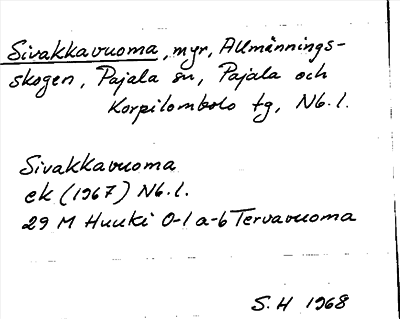 Sivakkavuoma, myr, Allmännings-
skogen, Pajala sn, Pajala och
Korpilombolo tg, Nb. l.
Sivakkavuoma
ek (1967) Nb. l.
29 M Huuki 0-1 a-b Tervavuoma
S. H 1968